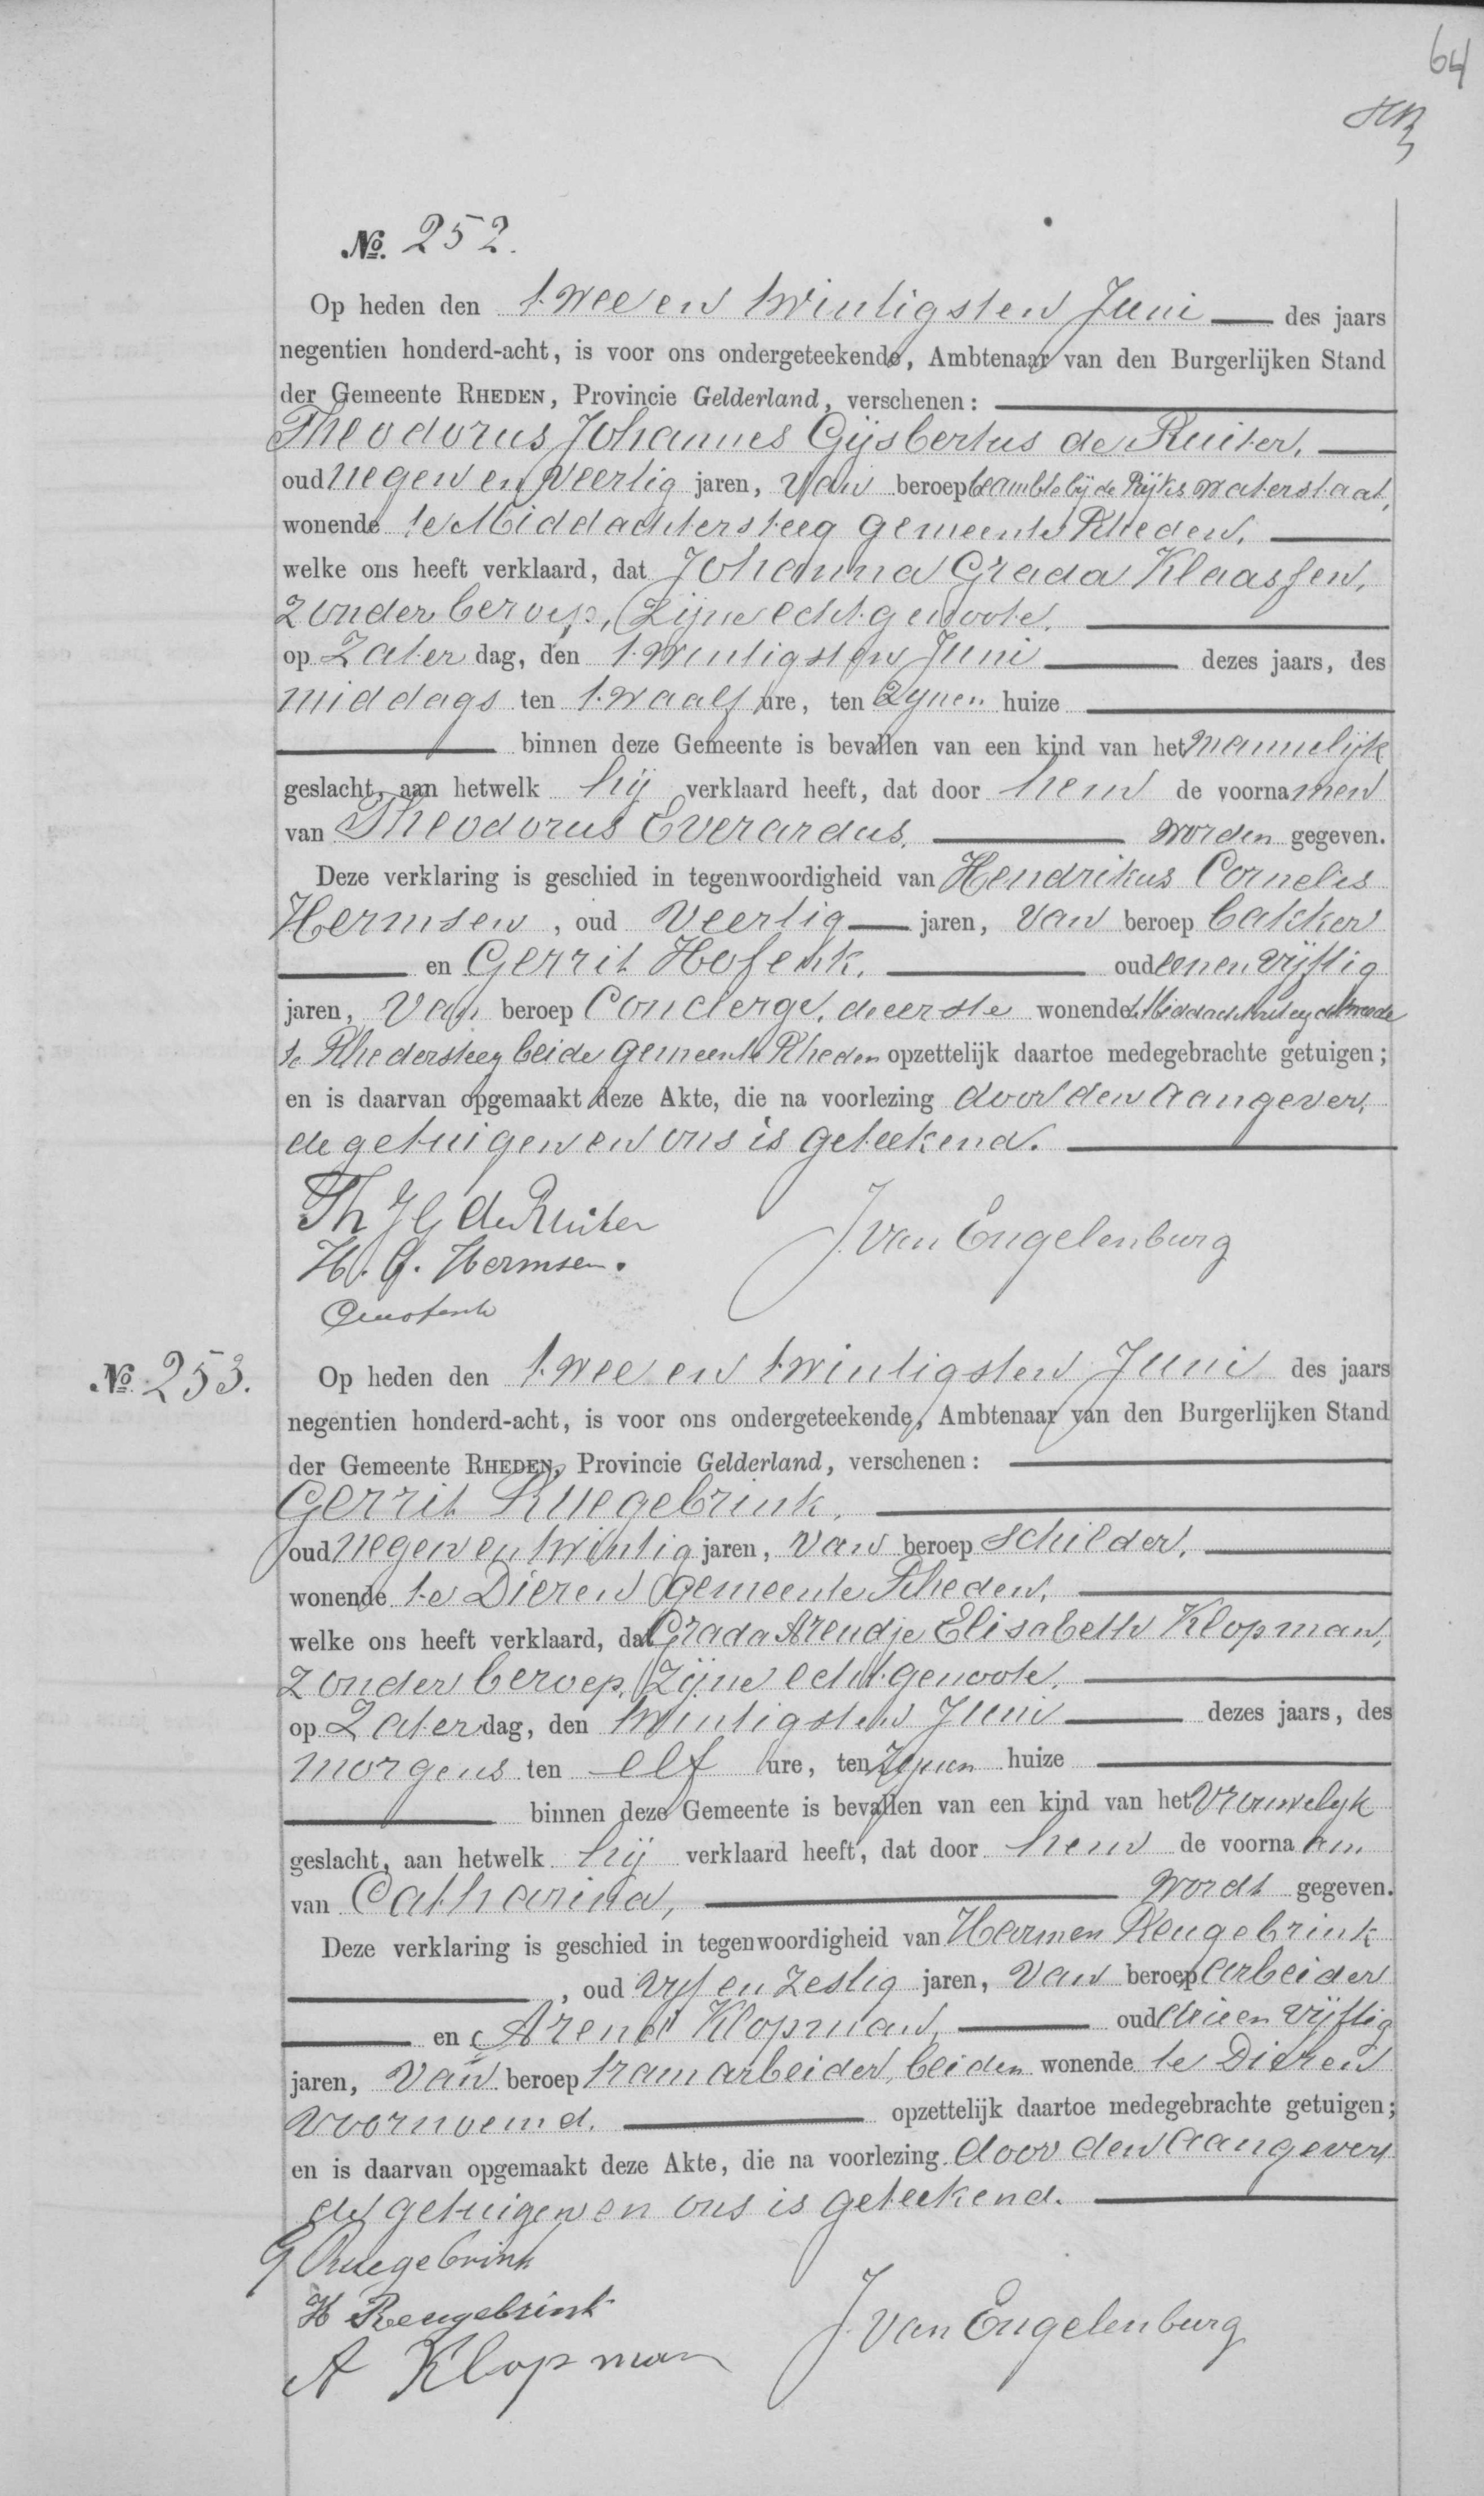 64
№ 252.
Op heden den twee en twintigsten Juni des jaars
negentien honderd-acht, is voor ons ondergeteekende, Ambtenaar van den Burgerlijken Stand
der Gemeente RHEDEN, Provincie Gelderland, verschenen:
Theodorus Johannes Gijsbertus de Ruiter,
oud negen en veertig jaren, van beroep beambte bij de Rijks waterstaat,
wonende te Middachtersteeg gemeente Rheden,
welke ons heeft verklaard, dat Johanna Grada Klaassen,
zonder beroep, zijne echtgenoote,
op Zaterdag, den twintigsten Juni dezes jaars, des
middags ten twaalf ure, ten zijnen huize
binnen deze Gemeente is bevallen van een kind van het mannelijk
geslacht, aan hetwelk hij verklaard heeft, dat door hem de voornamen
van Theodorus Everardus, worden gegeven.
Deze verklaring is geschied in tegenwoordigheid van Hendrikus Cornelis
Hermsen, oud veertig jaren, van beroep bakker
en Gerrit Hofenk, oud eenen vijftig
jaren, van beroep Concierge, de eerste wonende te Middachtersteeg de tweede
te Rhedersteeg beide gemeente Rheden opzettelijk daartoe medegebrachte getuigen;
en is daarvan opgemaakt deze Akte, die na voorlezing door den aangever,
de getuigen en ons is geteekend.
Th J G de Ruiter
J. van Engelenburg
H. C. Hermsen.
№ 253.
Op heden den twee en twintigsten Juni des jaars
negentien honderd-acht, is voor ons ondergeteekende, Ambtenaar van den Burgerlijken Stand
der Gemeente RHEDEN, Provincie Gelderland, verschenen:
Gerrit Ruegebrink,
oud negen en twintig jaren, van beroep schilder,
wonende te Dieren gemeente Rheden,
welke ons heeft verklaard, dat Grada Arendje Elisabeth Klopman,
zonder beroep, zijne echtgenoote,
op Zaterdag, den twintigsten Juni dezes jaars, des
morgens ten elf ure, ten zijnen huize
binnen deze Gemeente is bevallen van een kind van het vrouwelijk
geslacht, aan hetwelk hij verklaard heeft, dat door hem de voornaam
van Catharina, wordt gegeven.
Deze verklaring is geschied in tegenwoordigheid van Harmen Reugebrink
, oud vijf en zestig jaren, van beroep arbeider
en Arend Klopman, oud drie en vijftig
jaren, van beroep tramarbeider, beiden wonende te Dieren
voornoemd, opzettelijk daartoe medegebrachte getuigen;
en is daarvan opgemaakt deze Akte, die na voorlezing door den aangever
de getuigen en ons is geteekend.
G Ruegebrink
H Reugebrink
J. van Engelenburg
A Klopman